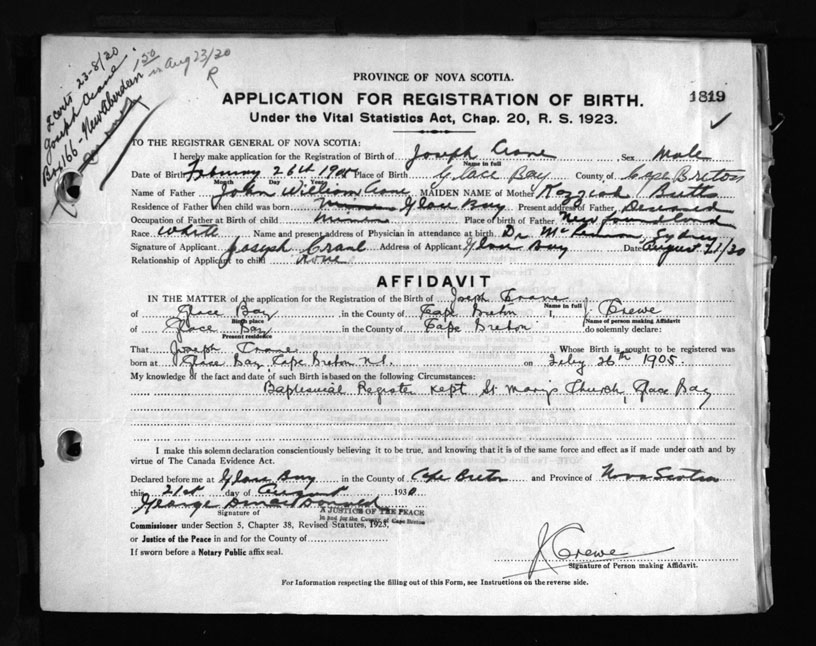 2 Certs 23-8/20
Joseph Crane
Box 166 - New Aberdeen
1 50
Aug 23/20
R
PROVINCE OF NOVA SCOTIA.
1819
APPLICATION FOR REGISTRATION OF BIRTH.
Under the Vital Statistics Act, Chap. 20, R. S. 1923.
TO THE REGISTRAR GENERAL OF NOVA SCOTIA:
I hereby make application for the Registration of Birth of Joseph Crane Sex Male
Name in full
Date of Birth February 26th 1905 Place of Birth Glace Bay County of Cape Breton
Month Day Year
Name of Father John William Crane MAIDEN NAME of Mother Kezziah Butts
Residence of Father when child was born Glace Bay Present address of Father Deceased
Occupation of Father at Birth of child Miner Place of birth of Father Newfoundland
Race White Name and present address of Physician in attendance at birth Dr. Sydney
Signature of Applicant Joseph Crane Address of Applicant Glace Bay Date August 21/30
Relationship of Applicant to child None
AFFIDAVIT
IN THE MATTER of the application for the Registration of the Birth of Joseph Crane
Name in full
of Glace Bay in the County of Cape Breton I, J Crewe
Birth place Name of person making Affidavit
of Glace Bay in the County of Cape Breton do solemnly declare:
Present residence
That Joseph Crane Whose Birth is sought to be registered was
born at Glace Bay, Cape Breton N.S. on Feby 26th 1905.
My knowledge of the fact and date of such Birth is based on the following Circumstances:
Baptismal Register kept St. Mary's Church, Glace Bay
I make this solemn declaration conscientiously believing it to be true, and knowing that it is of the same force and effect as if made under oath and by
virtue of The Canada Evidence Act.
Declared before me at Glace Bay in the County of Cape Breton and Province of Nova Scotia
this 21st day of August 1930
George Donald
Signature of
A JUSTICE OF THE PEACE
in and for the County of Cape Breton
Commissioner under Section 5, Chapter 38, Revised Statutes, 1923,
or Justice of the Peace in and for the County of
If sworn before a Notary Public affix seal.
J Crewe
Signature of Person making Affidavit.
For Information respecting the filling out of this Form, see Instructions on the reverse side.